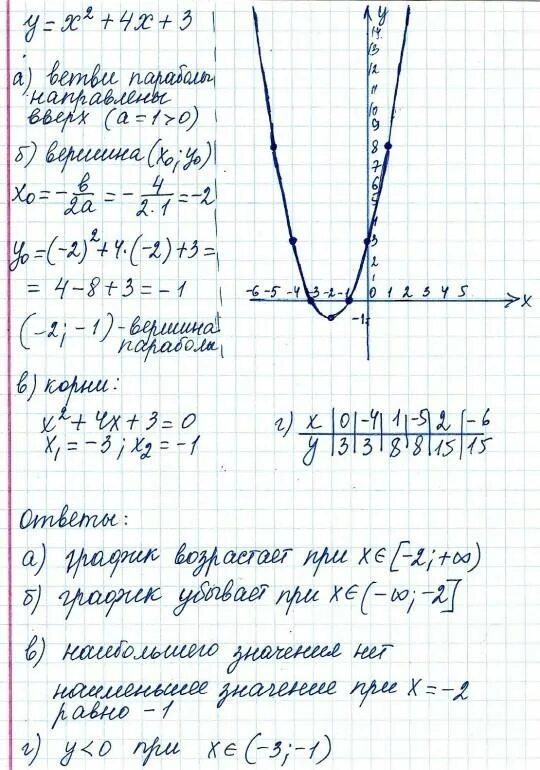 y = x² + 4x + 3
а) ветви параболы
направлены
вверх (а = 1 > 0)
б) вершина (x₀; y₀)
x₀ = -в/2a = -4/2·1 = -2
y₀ = (-2)² + 4·(-2) + 3 =
= 4 - 8 + 3 = -1
(-2; -1) - вершина
параболы
y
14
13
12
11
10
9
8
7
6
5
4
3
2
1
-6 -5 -4 -3 -2 -1 0 1 2 3 4 5 x
-1
в) корни:
x² + 4x + 3 = 0
x₁ = -3; x₂ = -1
г) x | 0 | -4 | 1 | -5 | 2 | -6
y | 3 | 3 | 8 | 8 | 15 | 15
ответы:
а) график возрастает при x∈[-2; +∞)
б) график убывает при x∈(-∞; -2]
в) наибольшего значения нет
наименьшее значение при x = -2
равно -1
г) y<0 при x∈(-3; -1)